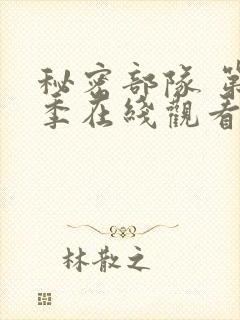 秘密部隊 第
季在綫觀看
林散之